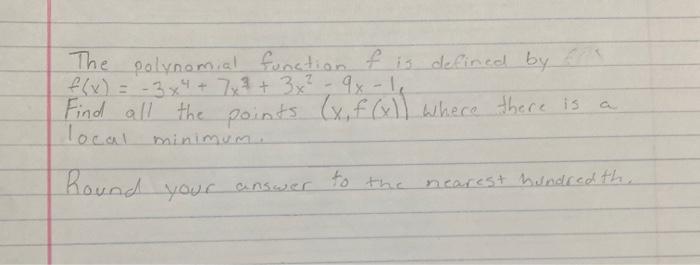 The polynomial function f is defined by
f(x) = -3x⁴ + 7x³ + 3x² - 9x - 1.
Find all the points (x, f(x)) where there is a
local minimum.
Round your answer to the nearest hundredth.